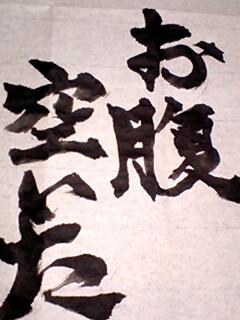 お腹
空いた